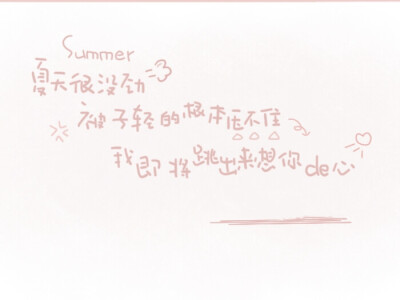 Summer
夏天很没劲
被子轻的根本压不住
我即将跳出来想你de心